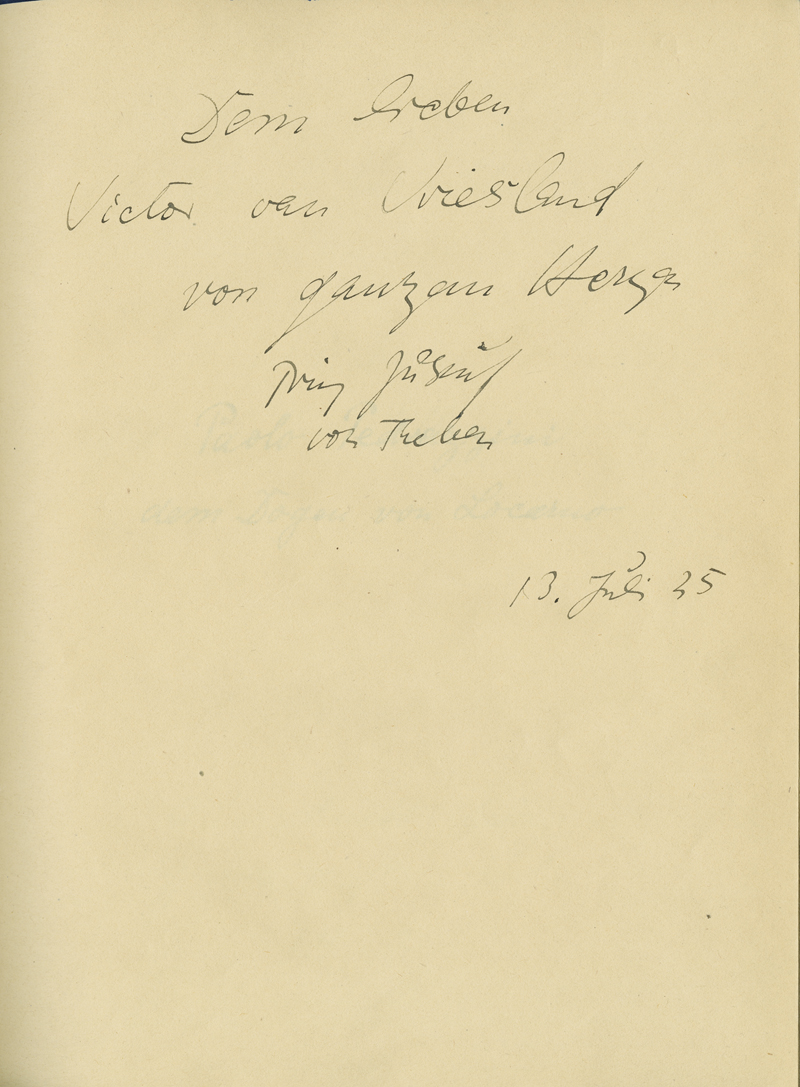 Dem lieben
Victor van Vriesland
von ganzem Herzen
Prinz Jussuf
von Theben
13. Juli 25